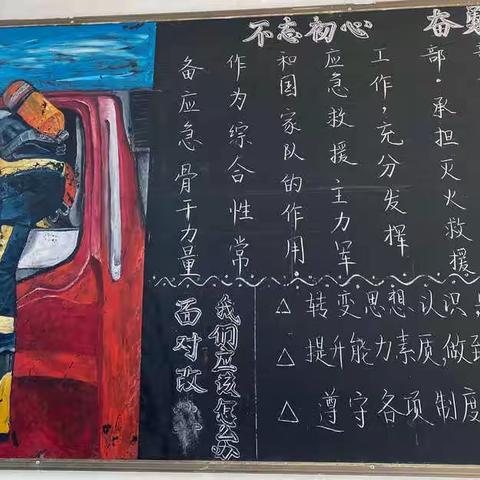 不忘初心 奋
部·承担灭火救援
工作,充分发挥
应急救援主力军
和国家队的作用。
作为综合性常
备应急骨干力量
面对改
我们应该怎么办
△ 转变思想认识
△ 提升能力素质,做到
△ 遵守各项制度